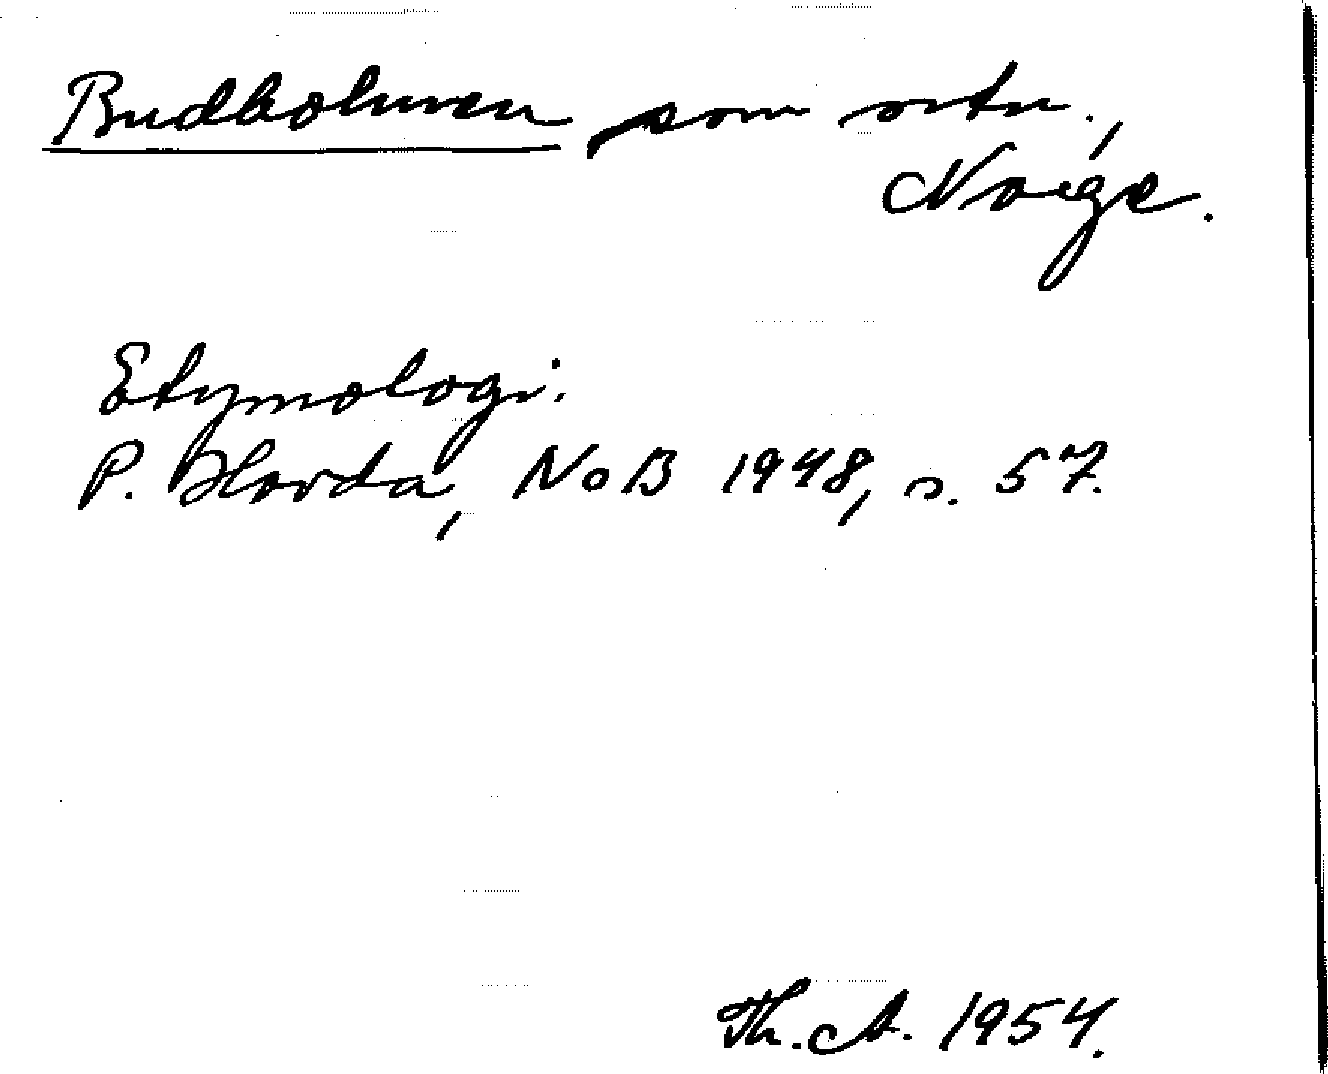 Budholmen som ortn.,
Noige.
Etymologi:
P. Hovda, NoB 1948, s. 57.
Th. A. 1954.